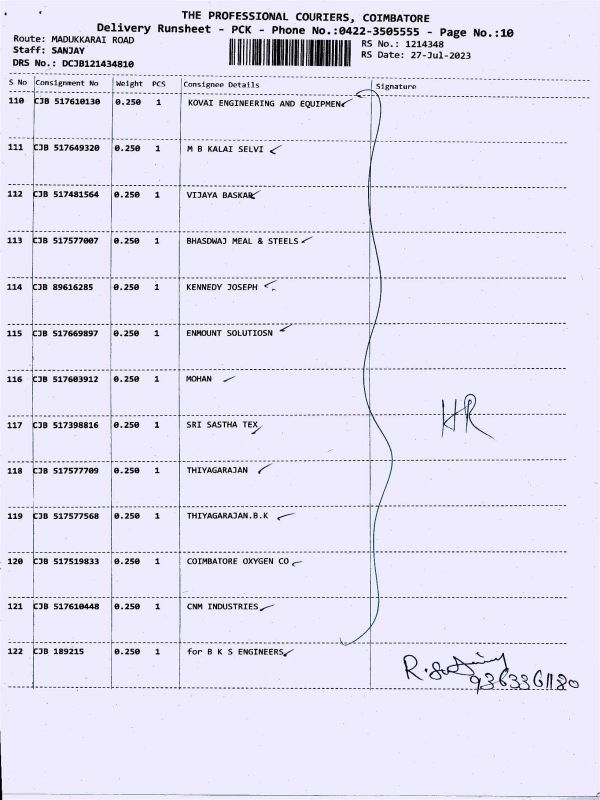 THE PROFESSIONAL COURIERS, COIMBATORE
Delivery Runsheet - PCK - Phone No.:0422-3505555 - Page No.:10
Route: MADUKKARAI ROAD
Staff: SANJAY
DRS No.: DCJB121434810
RS No.: 1214348
RS Date: 27-Jul-2023
S No Consignment No Weight PCS Consignee Details Signature
110 CJB 517610130 0.250 1 KOVAI ENGINEERING AND EQUIPMEN
111 CJB 517649320 0.250 1 M B KALAI SELVI
112 CJB 517481564 0.250 1 VIJAYA BASKAR
113 CJB 517577007 0.250 1 BHASDWAJ MEAL & STEELS
114 CJB 89616285 0.250 1 KENNEDY JOSEPH
115 CJB 517669897 0.250 1 ENMOUNT SOLUTIOSN
116 CJB 517603912 0.250 1 MOHAN
117 CJB 517398816 0.250 1 SRI SASTHA TEX
HR
118 CJB 517577709 0.250 1 THIYAGARAJAN
119 CJB 517577568 0.250 1 THIYAGARAJAN.B.K
120 CJB 517519833 0.250 1 COIMBATORE OXYGEN CO
121 CJB 517610448 0.250 1 CNM INDUSTRIES
122 CJB 189215 0.250 1 for B K S ENGINEERS
9363361180